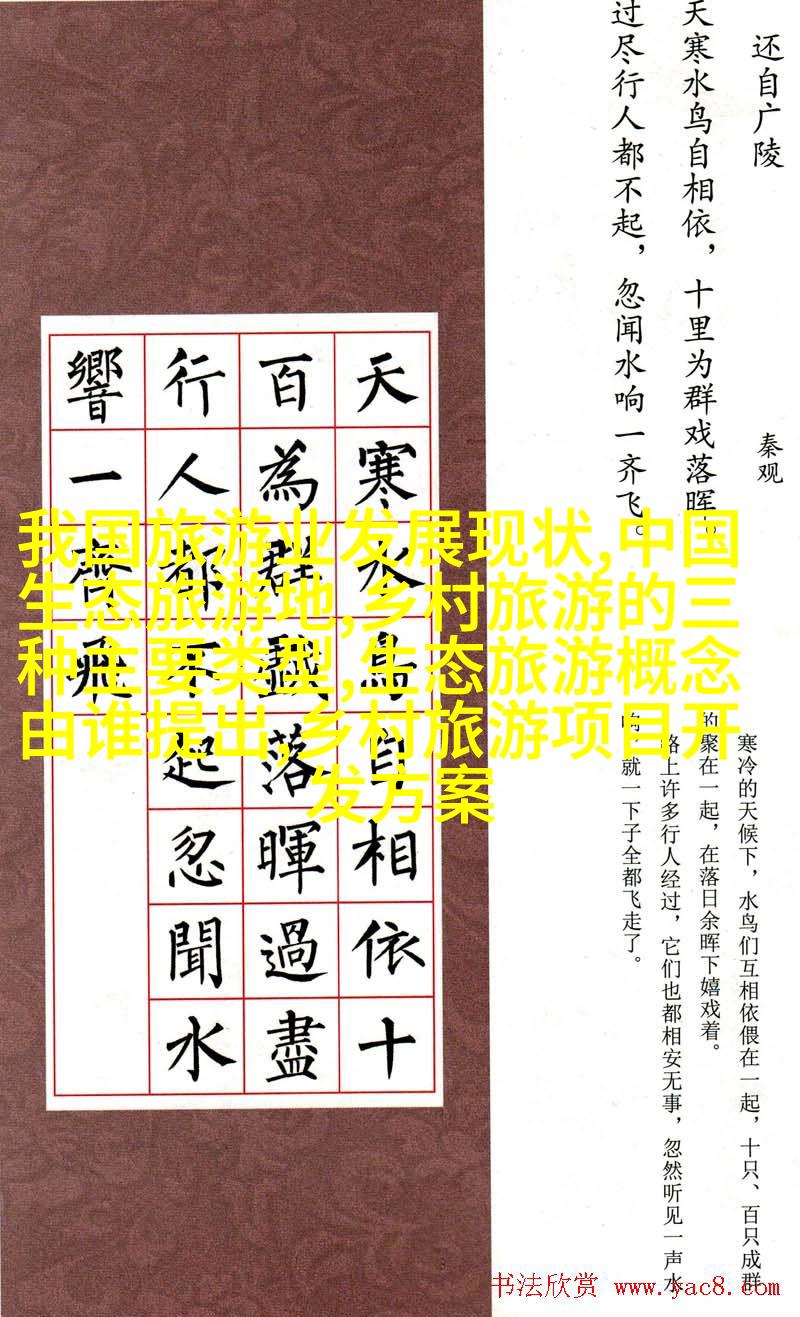 还自广陵
秦观
天寒水鸟自相依，十里为群戏落晖。
过尽行人都不起，忽闻水响一齐飞。
天寒水鳥自相依十
百為群戲落暉過盡
行人都不起忽聞水
響一齊飛
我国旅游业发展现状,中国
生态旅游地,乡村旅游的三
种主要类型,生态旅游概念
由谁提出,乡村旅游项目开
发方案
寒冷的天候下，水鸟们互相依偎在一起，十只、百只成群
的聚在一起，在落日余晖下嬉戏着。
路上许多行人经过，它们也都相安无事，忽然听见一声水
响，就一下子全都飞走了。
书法欣赏 www.yac8.com